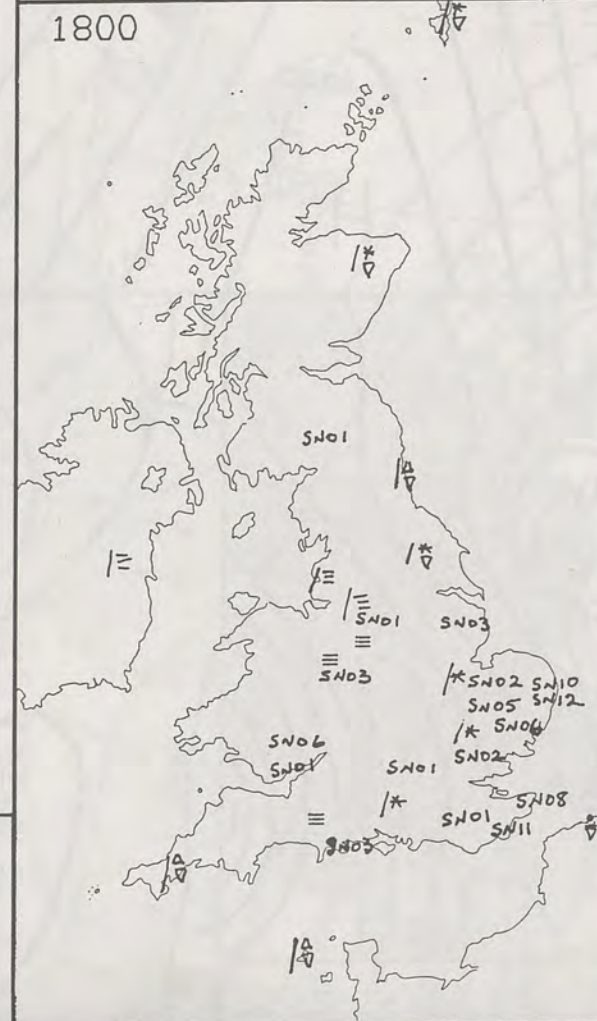 1800
SN01
SN01
SN03
SN03
SN02 SN10
SN05 SN12
SN06
SN06
SN02
SN01
SN01
SN08
SN01
SN11
SN03